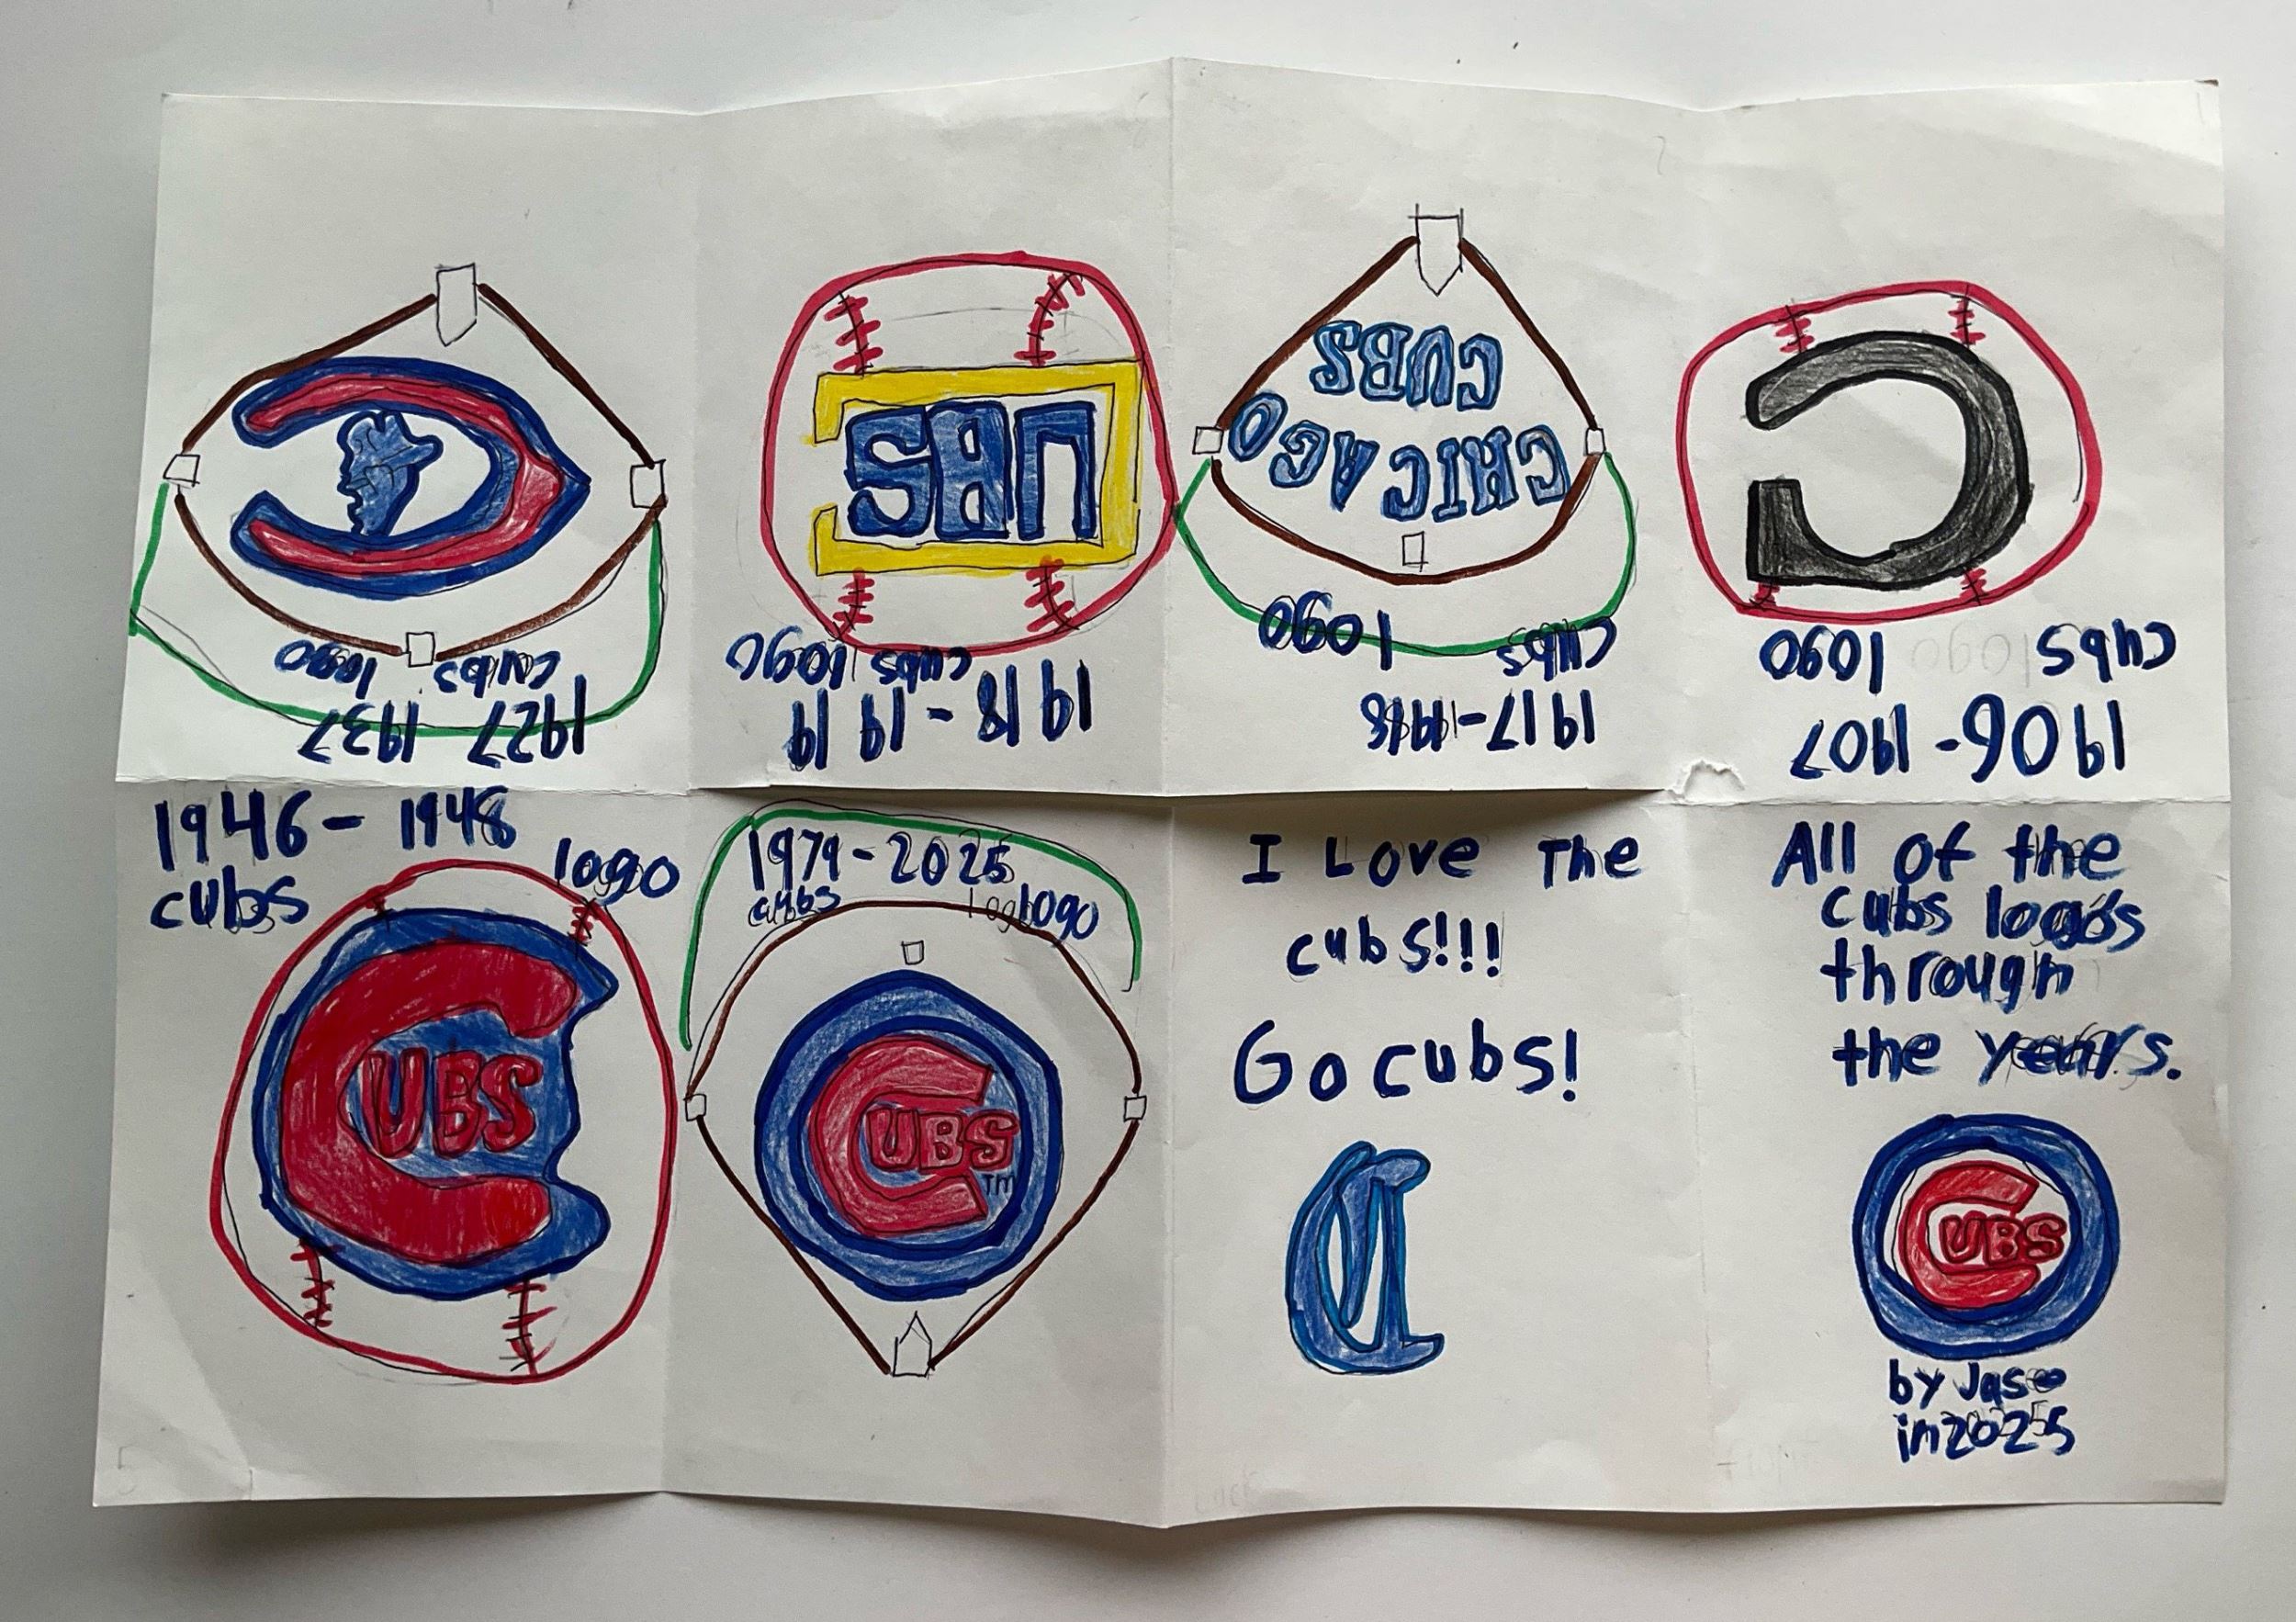 All of the
cubs logos
through
the years.
CUBS
by Jase
in 2025
1906-1907
cubs logo
C
1917-
cubs logo
CHICAGO
CUBS
1918-1919
cubs logo
CUBS
1927 1937
cubs logo
C
1946-1948
cubs logo
CUBS
1979-2025
cubs logo
CUBS
TM
I Love The
cubs!!!
Go cubs!
C